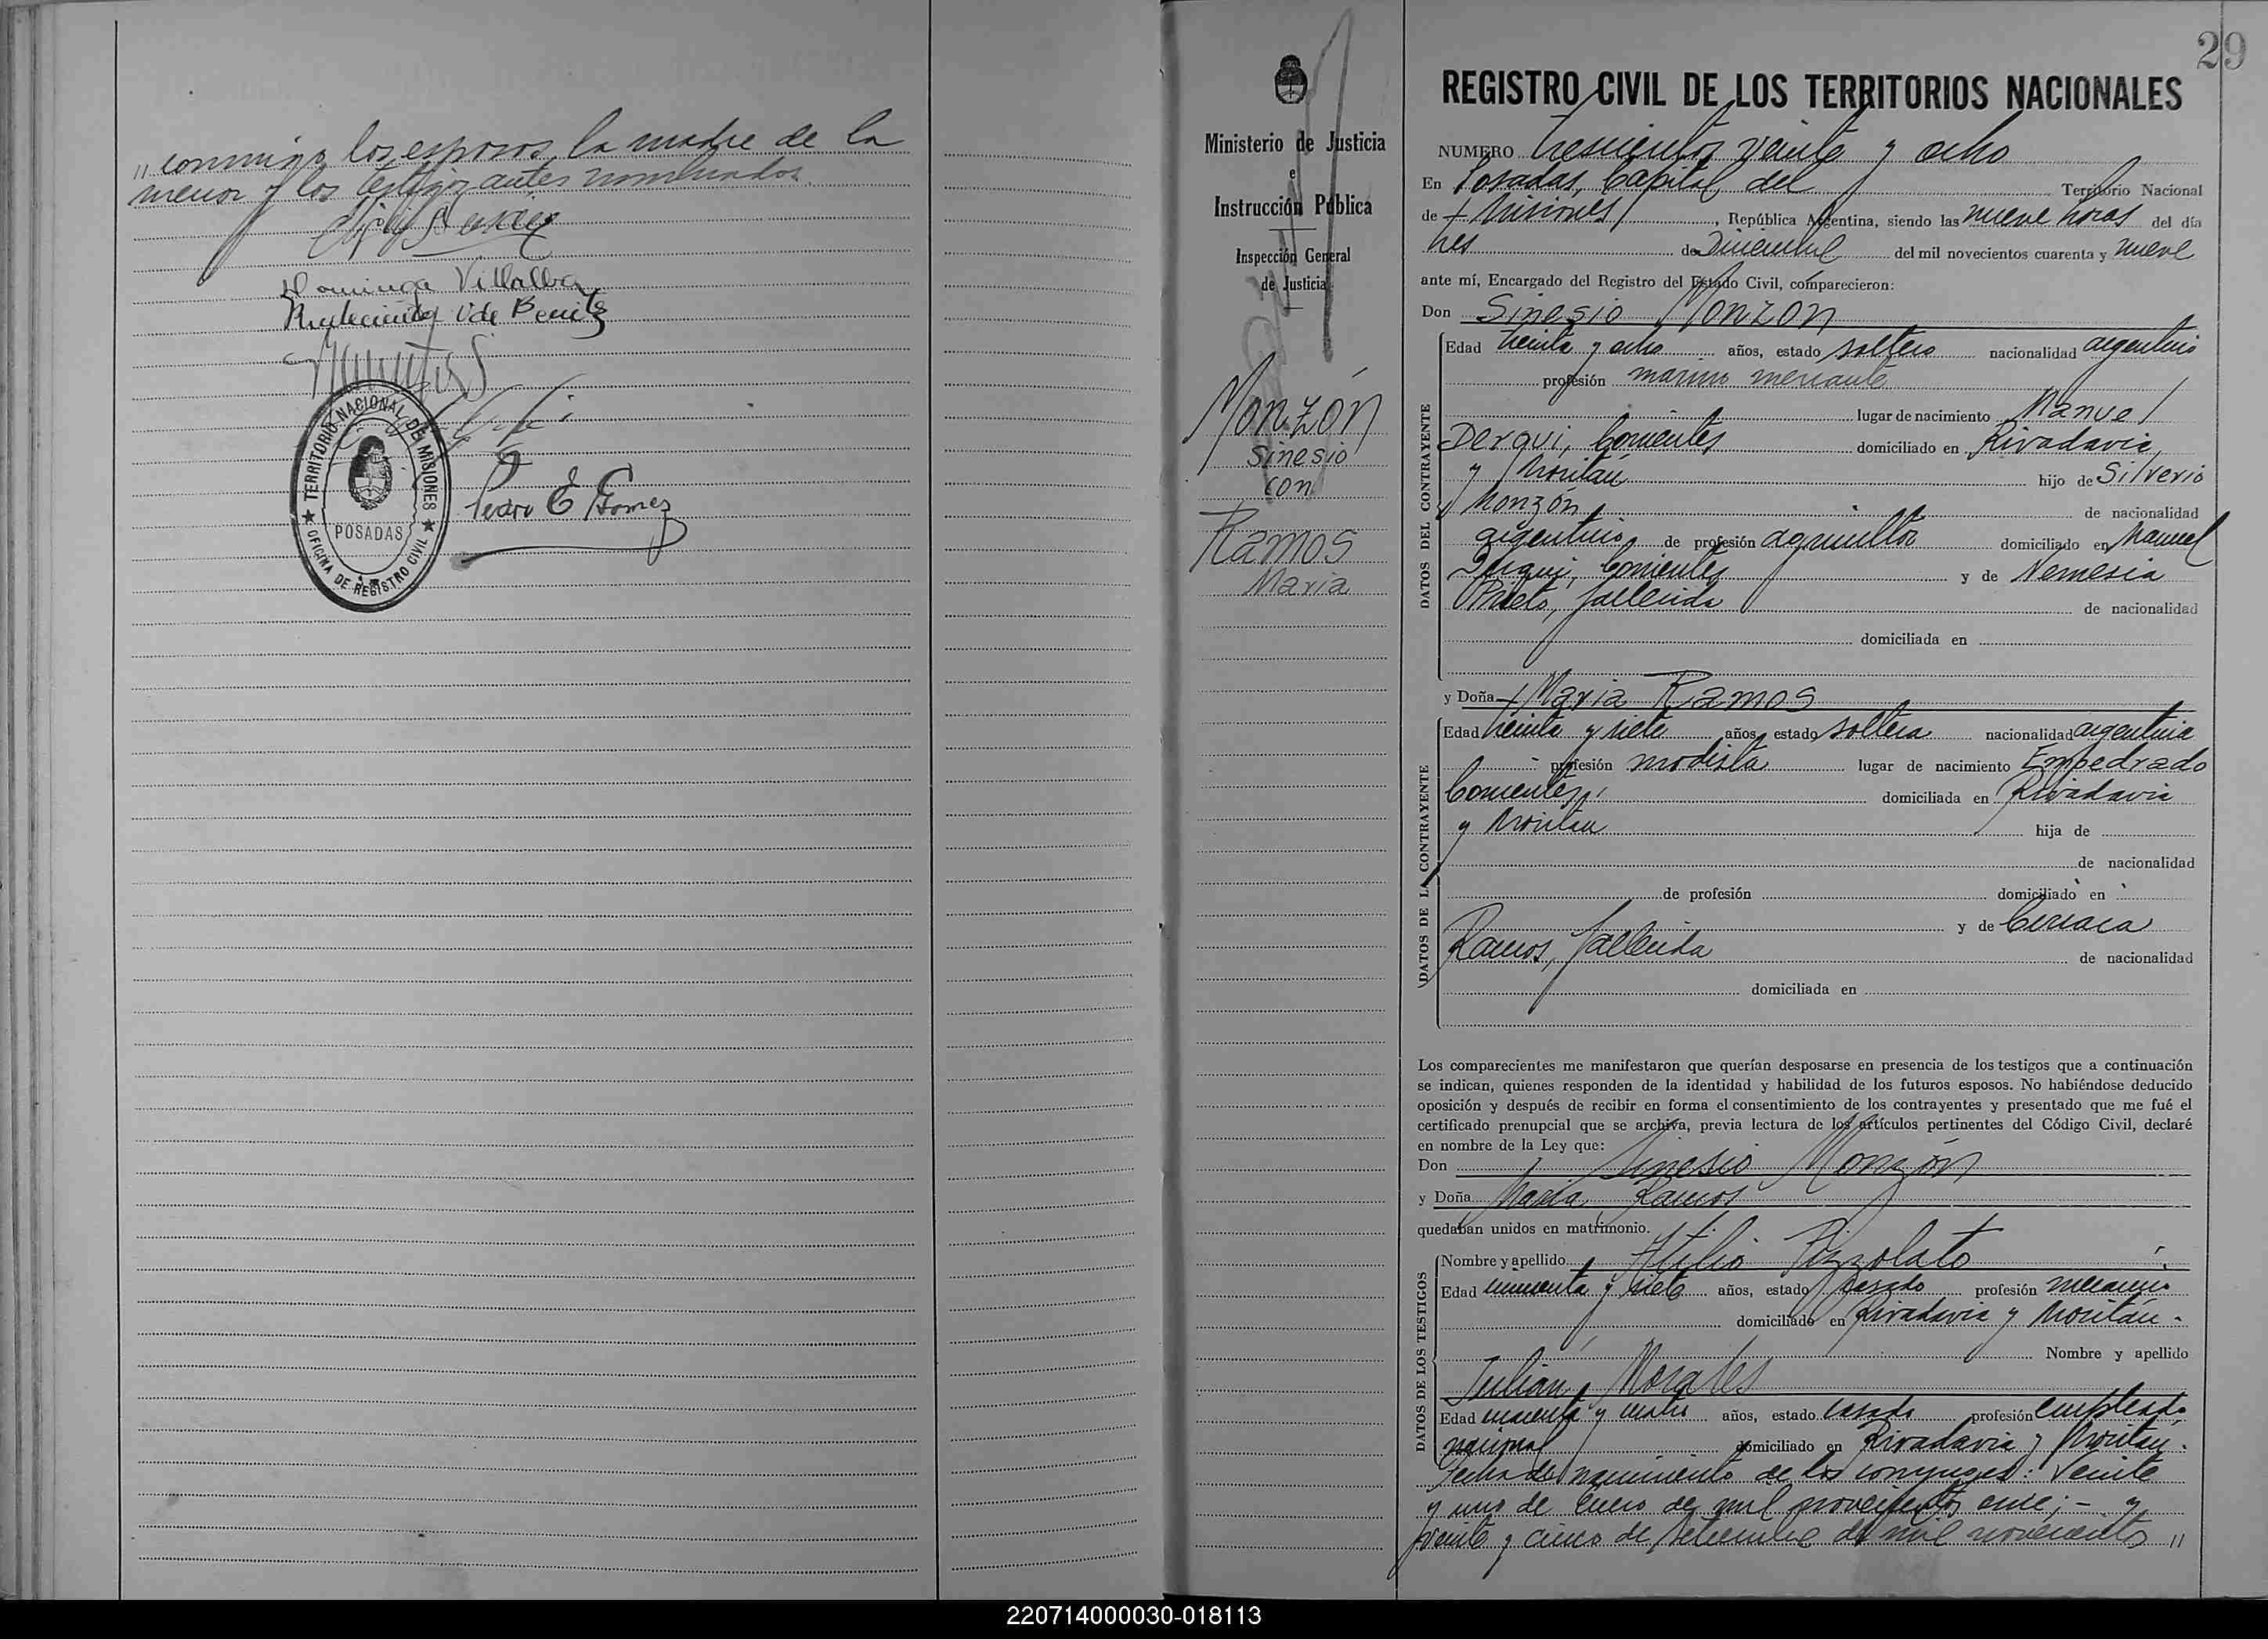 " conmigo los esposos, la madre de la
menor y los testigos antes nombrados.
Dominga Villalba
Vda Benitez
TERRITORIO NACIONAL DE MISIONES
POSADAS
OFICINA DE REGISTRO CIVIL
Pedro E Gomez
29
Ministerio de Justicia
e
Instrucción Pública
Inspección General
de Justicia
Monzón
Sinesio
con
Ramos
Maria
REGISTRO CIVIL DE LOS TERRITORIOS NACIONALES
NUMERO trescientos veinte y ocho
En Posadas, Capital del Territorio Nacional
de Misiones, República Argentina, siendo las nueve horas del día
tres de Diciembre del mil novecientos cuarenta y nueve
ante mí, Encargado del Registro del Estado Civil, comparecieron:
Don Sinesio Monzon
DATOS DEL CONTRAYENTE
Edad treinta y ocho años, estado soltero nacionalidad argentino
profesión marino mercante
lugar de nacimiento Manuel
Derqui, Corrientes domiciliado en Rivadavia
y Moritán hijo de Silverio
Monzón de nacionalidad
argentino de profesión agricultor domiciliado en Manuel
Derqui, Corrientes y de Nemesia
Prieto, fallecida de nacionalidad
domiciliada en
y Doña Maria Ramos
DATOS DE LA CONTRAYENTE
Edad treinta y siete años, estado soltera nacionalidad argentina
profesión modista lugar de nacimiento Empedrado
Corrientes domiciliada en Rivadavia
y Moritan hija de
de nacionalidad
de profesión domiciliado en
y de Ceriaca
Ramos, fallecida de nacionalidad
domiciliada en
Los comparecientes me manifestaron que querían desposarse en presencia de los testigos que a continuación
se indican, quienes responden de la identidad y habilidad de los futuros esposos. No habiéndose deducido
oposición y después de recibir en forma el consentimiento de los contrayentes y presentado que me fué el
certificado prenupcial que se archiva, previa lectura de los artículos pertinentes del Código Civil, declaré
en nombre de la Ley que:
Don Sinesio Monzón
y Doña Maria Ramos
quedaban unidos en matrimonio.
DATOS DE LOS TESTIGOS
Nombre y apellido Atilio Pizzolato
Edad cincuenta y siete años, estado casado profesión mecanico
domiciliado en Rivadavia y Moritán.
Nombre y apellido
Julián Morales
Edad cuarenta y cuatro años, estado casado profesión empleado
nacional domiciliado en Rivadavia y Moritan.
Fecha de nacimiento de los conyuges: Veinte
y uno de Enero de mil novecientos once; - y
veinte y cinco de Setiembre de mil novecientos "
220714000030-018113